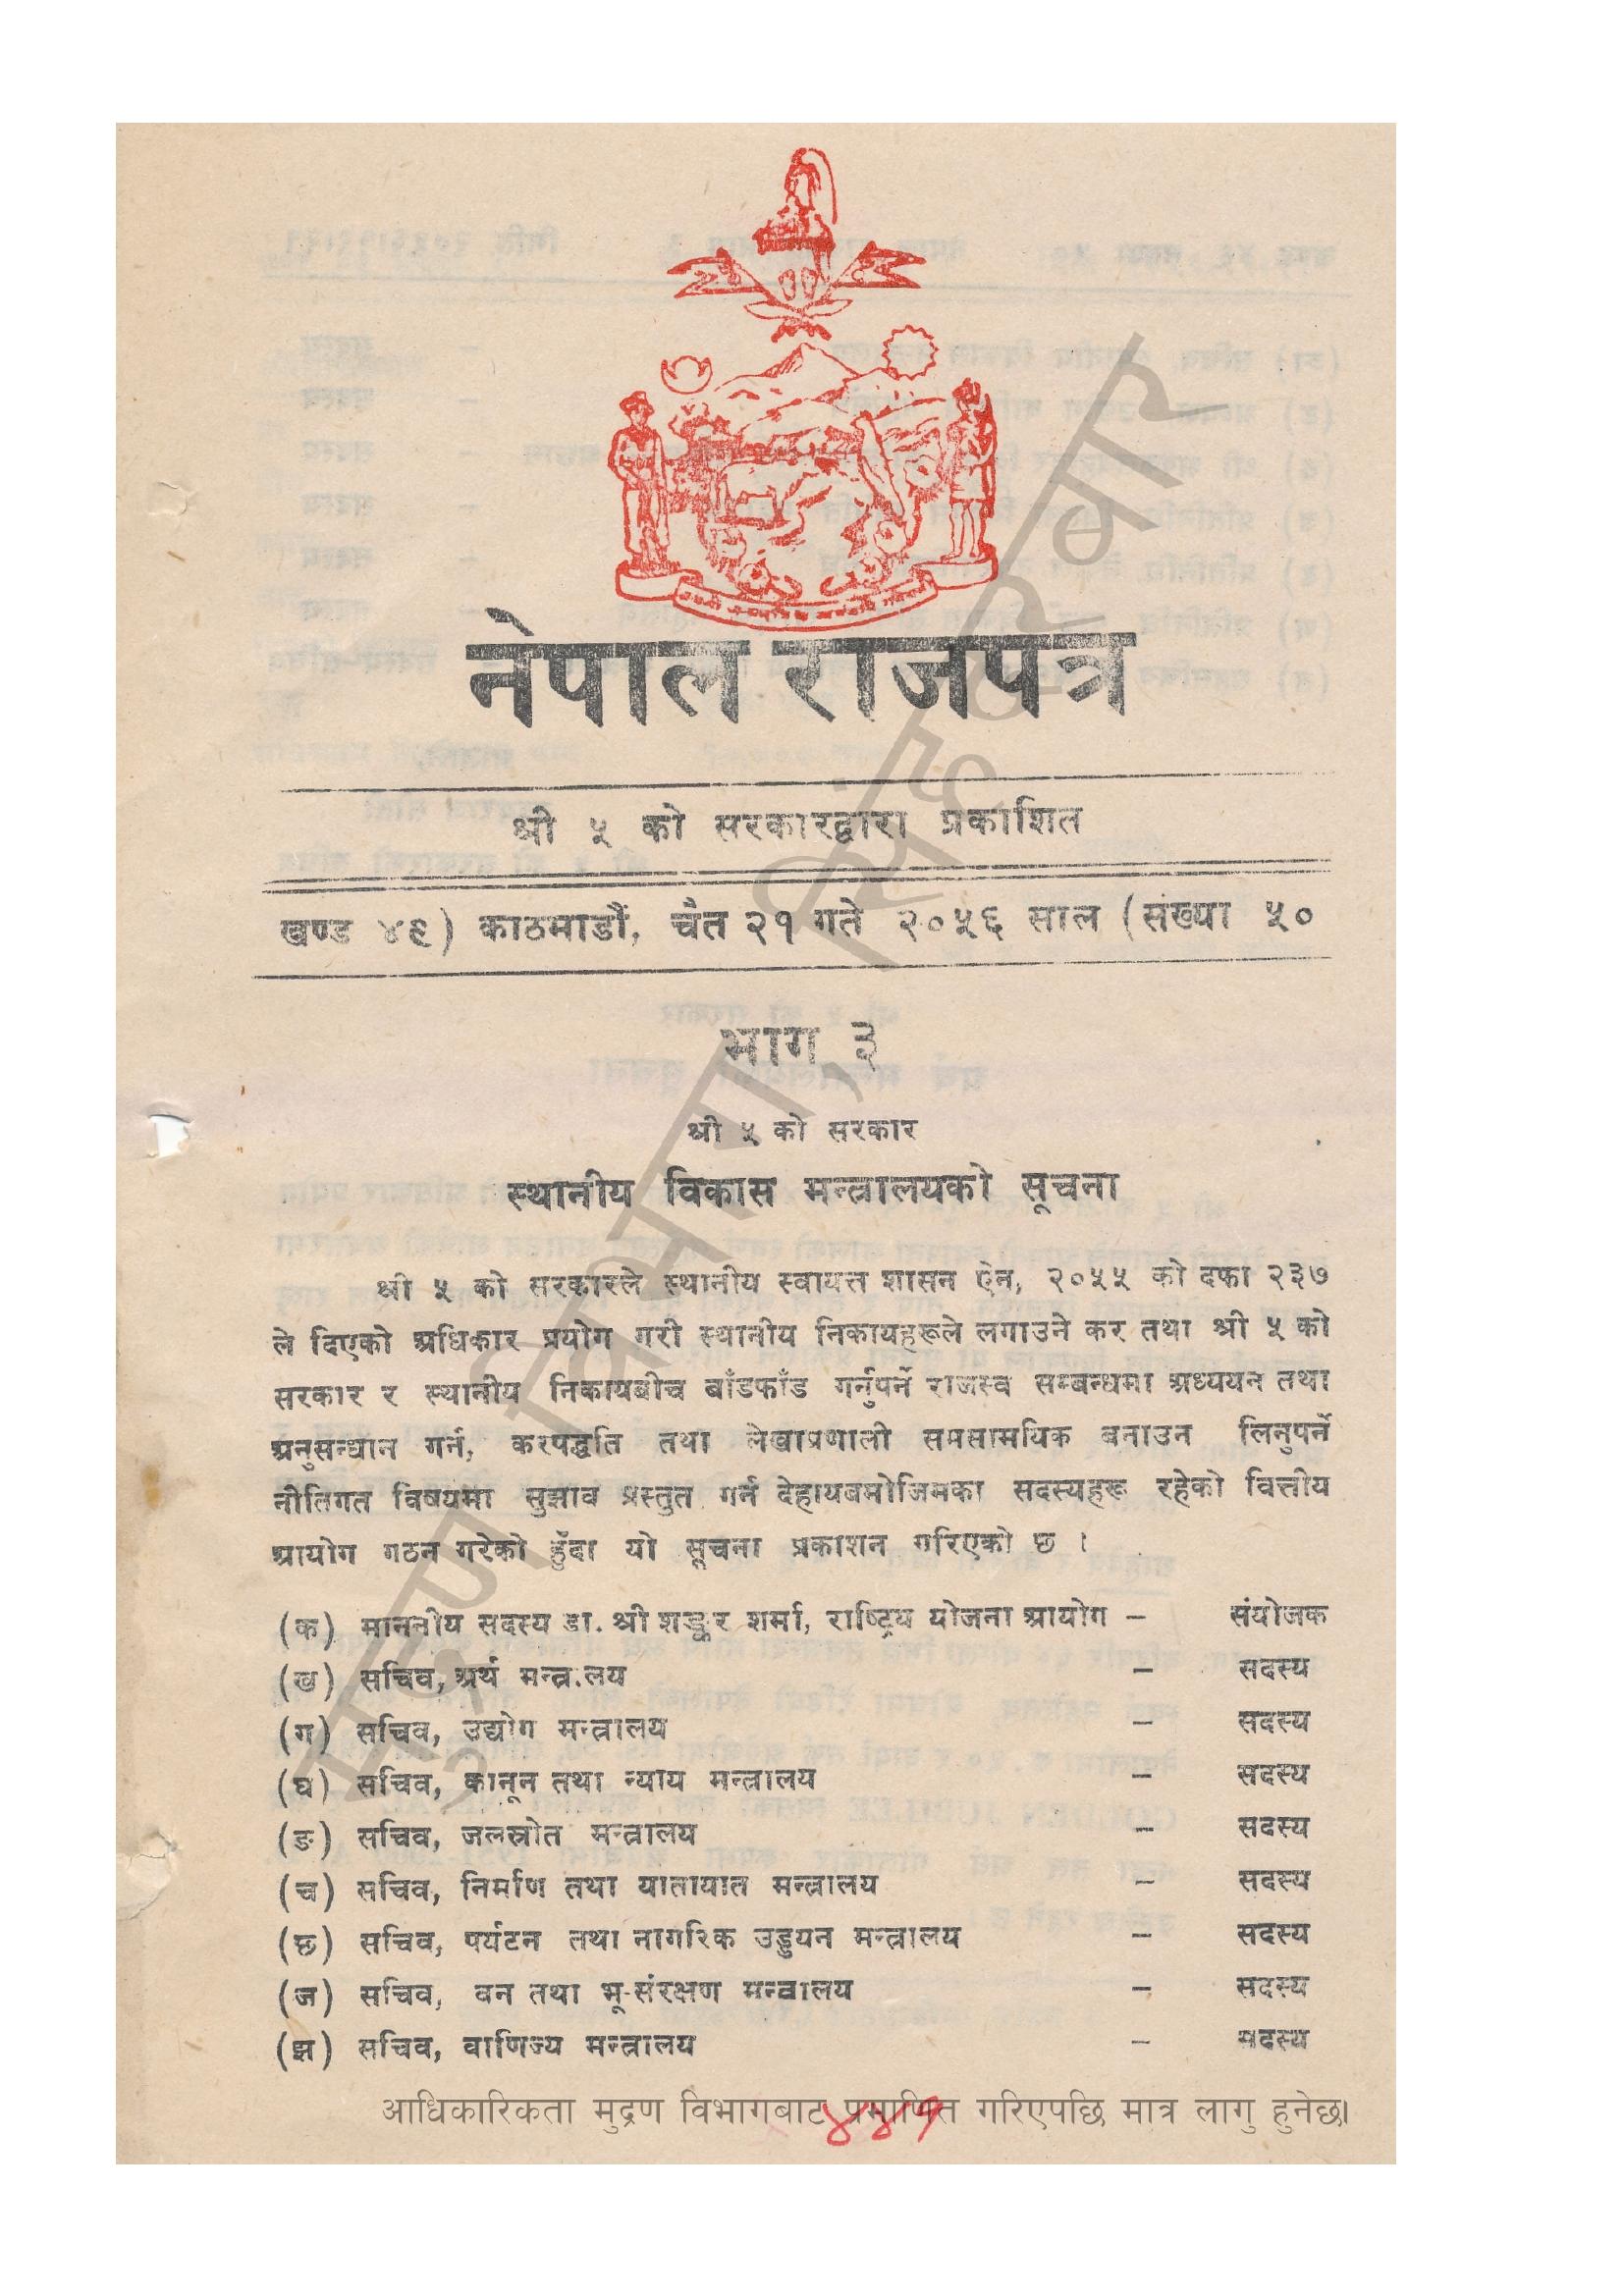 नेपाल राजपत्र
श्री ५ को सरकारद्वारा प्रकाशित
खण्ड ४९) काठमाडौं, चैत २१ गते २०५६ साल (संख्या ५०
भाग ३
श्री ५ को सरकार
स्थानीय विकास मन्त्रालयको सूचना
श्री ५ को सरकारले स्थानीय स्वायत्त शासन ऐन, २०५५ को दफा २३७
ले दिएको अधिकार प्रयोग गरी स्थानीय निकायहरूले लगाउने कर तथा श्री ५ को
सरकार र स्थानीय निकायबीच बाँडफाँड गर्नुपर्ने राजस्व सम्बन्धमा अध्ययन तथा
अनुसन्धान गर्न, करपद्धति तथा लेखाप्रणाली समसामयिक बनाउन लिनुपर्ने
नीतिगत विषयमा सुझाव प्रस्तुत गर्न देहायबमोजिमका सदस्यहरू रहेको वित्तीय
आयोग गठन गरेको हुँदा यो सूचना प्रकाशन गरिएको छ ।
(क) माननीय सदस्य डा. श्री शङ्कर शर्मा, राष्ट्रिय योजना आयोग – संयोजक
(ख) सचिव, अर्थ मन्त्रालय – सदस्य
(ग) सचिव, उद्योग मन्त्रालय – सदस्य
(घ) सचिव, कानून तथा न्याय मन्त्रालय – सदस्य
(ङ) सचिव, जलस्रोत मन्त्रालय – सदस्य
(च) सचिव, निर्माण तथा यातायात मन्त्रालय – सदस्य
(छ) सचिव, पर्यटन तथा नागरिक उड्डयन मन्त्रालय – सदस्य
(ज) सचिव, वन तथा भू-संरक्षण मन्त्रालय – सदस्य
(झ) सचिव, वाणिज्य मन्त्रालय – सदस्य
मुद्रण विभाग, सिंहदरबार
आधिकारिकता मुद्रण विभागबाट प्रमाणित गरिएपछि मात्र लागु हुनेछ।
४४१